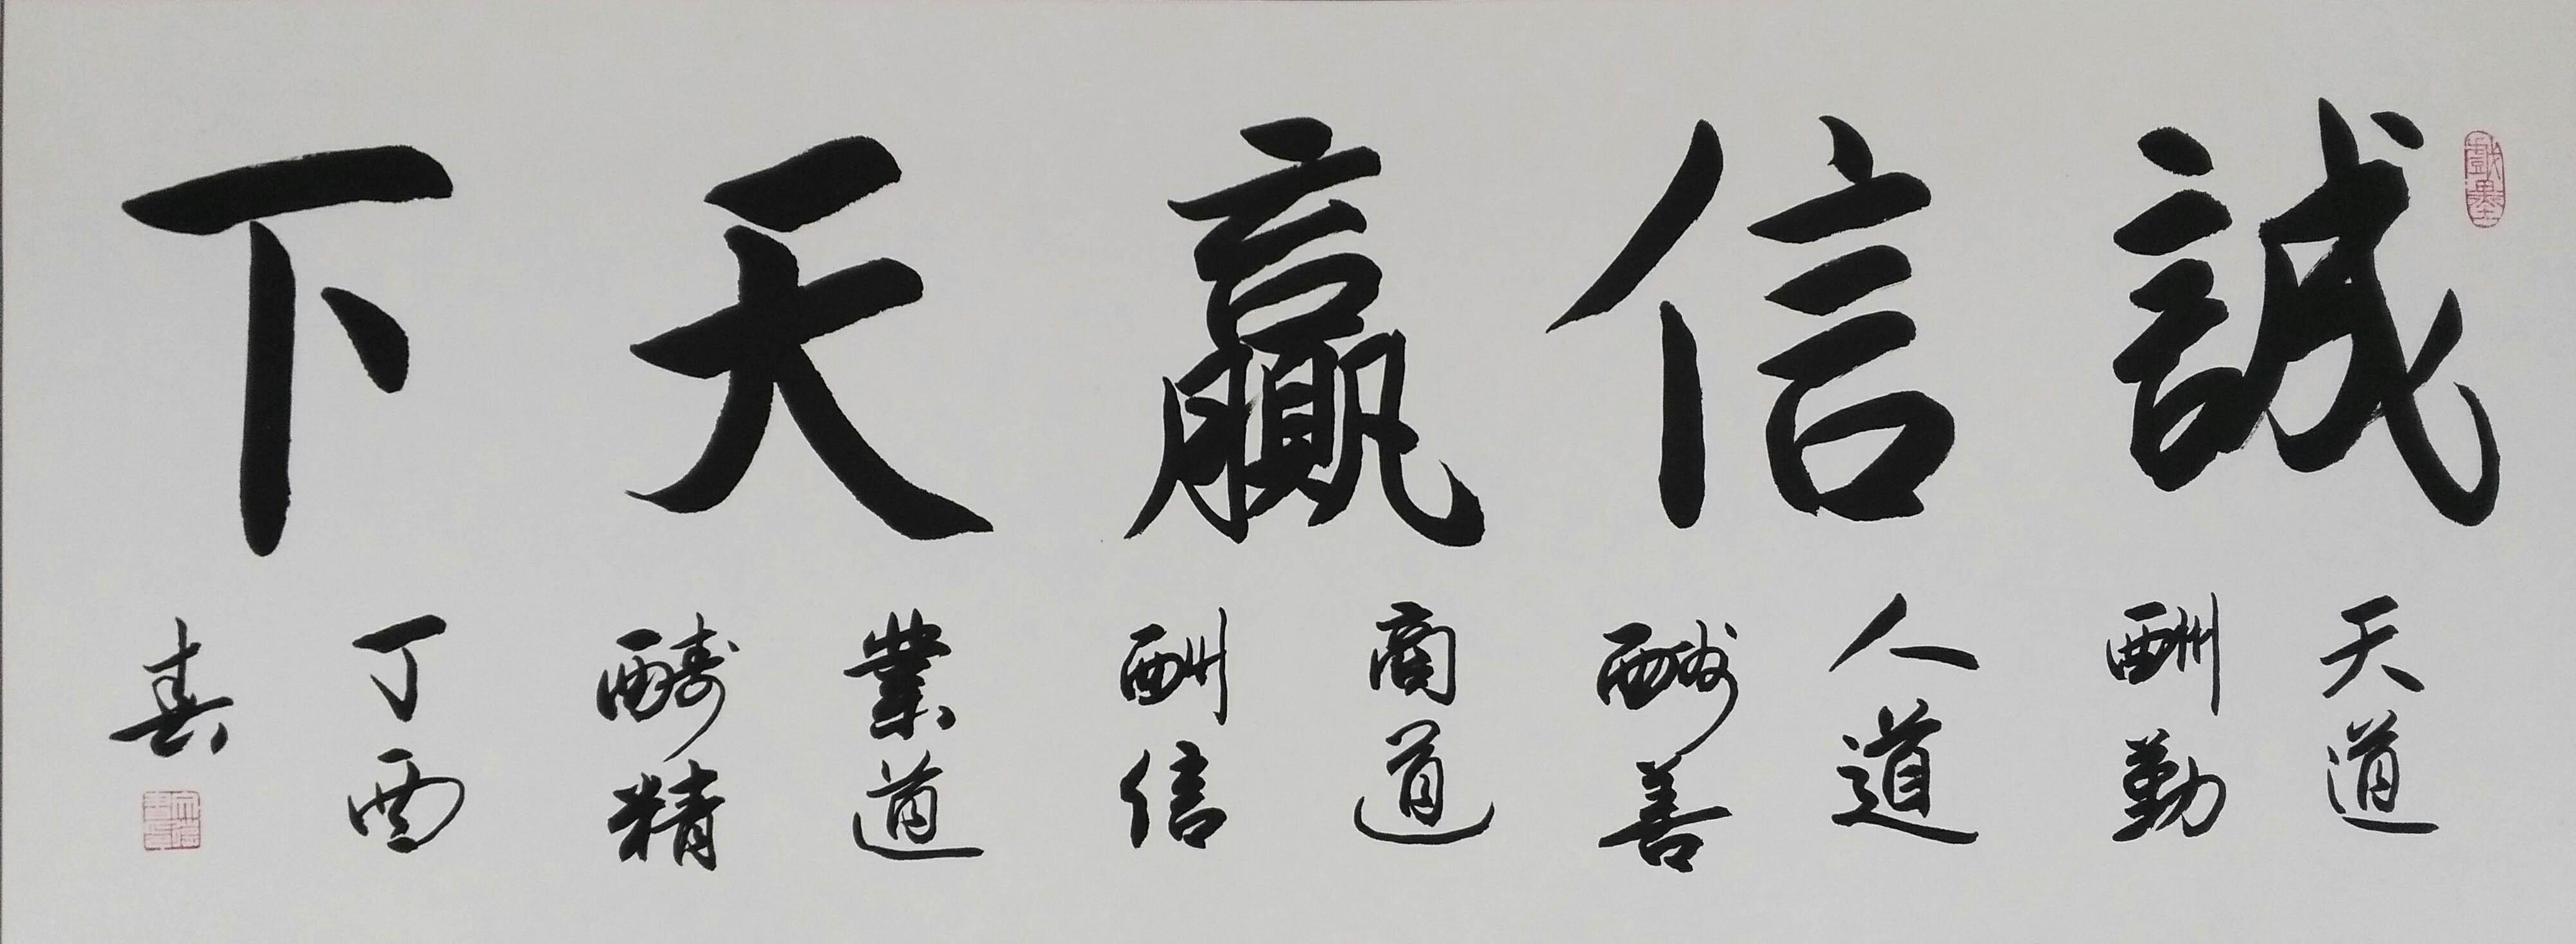 誠信贏天下
天道
酬勤
人道
酬善
商道
酬信
業道
醻精
丁酉
春
戲墨